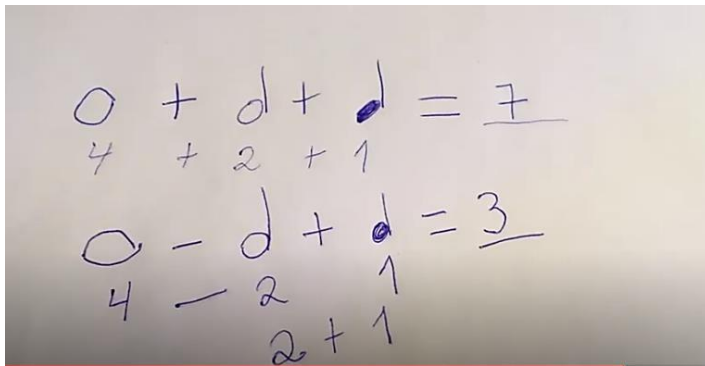 𝅝 + 𝅗𝅥 + 𝅘𝅥 = 7
4 + 2 + 1
𝅝 - 𝅗𝅥 + 𝅘𝅥 = 3
4 - 2 1
2 + 1